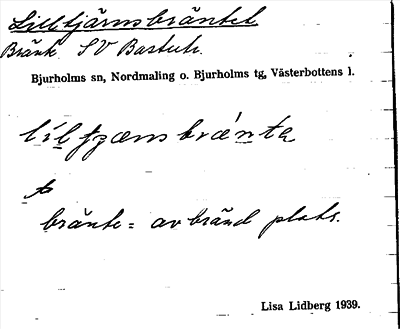 Lilltjärnsbräntet
Bränt SV Bastutr.
Bjurholms sn, Nordmaling o. Bjurholms tg, Västerbottens l.
bränte = avbränd plats.
Lisa Lidberg 1939.